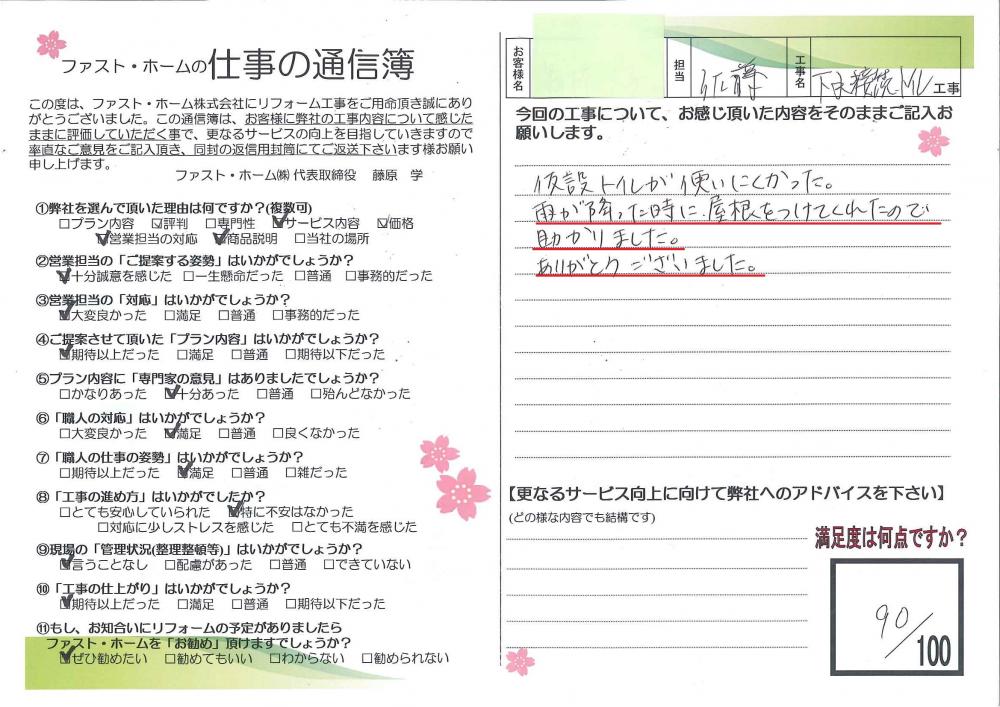 ファスト・ホームの仕事の通信簿
この度は、ファスト・ホーム株式会社にリフォーム工事をご用命頂き誠にあり
がとうございました。この通信簿は、お客様に弊社の工事内容について感じた
ままに評価していただく事で、更なるサービスの向上を目指していきますので
率直なご意見をご記入頂き、同封の返信用封筒にてご返送下さいます様お願い
申し上げます。
ファスト・ホーム㈱ 代表取締役 藤原 学
①弊社を選んで頂いた理由は何ですか?(複数可)
□プラン内容 ☑評判 □専門性 ☑サービス内容 ☑価格
☑営業担当の対応 ☑商品説明 □当社の場所
②営業担当の「ご提案する姿勢」はいかがでしょうか?
☑十分誠意を感じた □一生懸命だった □普通 □事務的だった
③営業担当の「対応」はいかがでしょうか?
☑大変良かった □満足 □普通 □事務的だった
④ご提案させて頂いた「プラン内容」はいかがでしょうか?
☑期待以上だった □満足 □普通 □期待以下だった
⑤プラン内容に「専門家の意見」はありましたでしょうか?
□かなりあった ☑十分あった □普通 □殆んどなかった
⑥「職人の対応」はいかがでしょうか?
□大変良かった ☑満足 □普通 □良くなかった
⑦「職人の仕事の姿勢」はいかがでしょうか?
□期待以上だった ☑満足 □普通 □雑だった
⑧「工事の進め方」はいかがでしたか?
□とても安心していられた ☑特に不安はなかった
□対応に少しストレスを感じた □とても不満を感じた
⑨現場の「管理状況(整理整頓等)」はいかがでしょうか?
☑言うことなし □配慮があった □普通 □できていない
⑩「工事の仕上がり」はいかがでしょうか?
☑期待以上だった □満足 □普通 □期待以下だった
⑪もし、お知合いにリフォームの予定がありましたら
ファスト・ホームを「お勧め」頂けますでしょうか?
☑ぜひ勧めたい □勧めてもいい □わからない □勧められない
お客様名 担当 佐藤 工事名 下水接続トイレ工事
今回の工事について、お感じ頂いた内容をそのままご記入お
願いします。
仮設トイレが使いにくかった。
雨が降った時に、屋根をつけてくれたので
助かりました。
ありがとうございました。
【更なるサービス向上に向けて弊社へのアドバイスを下さい】
(どの様な内容でも結構です)
満足度は何点ですか?
90/100